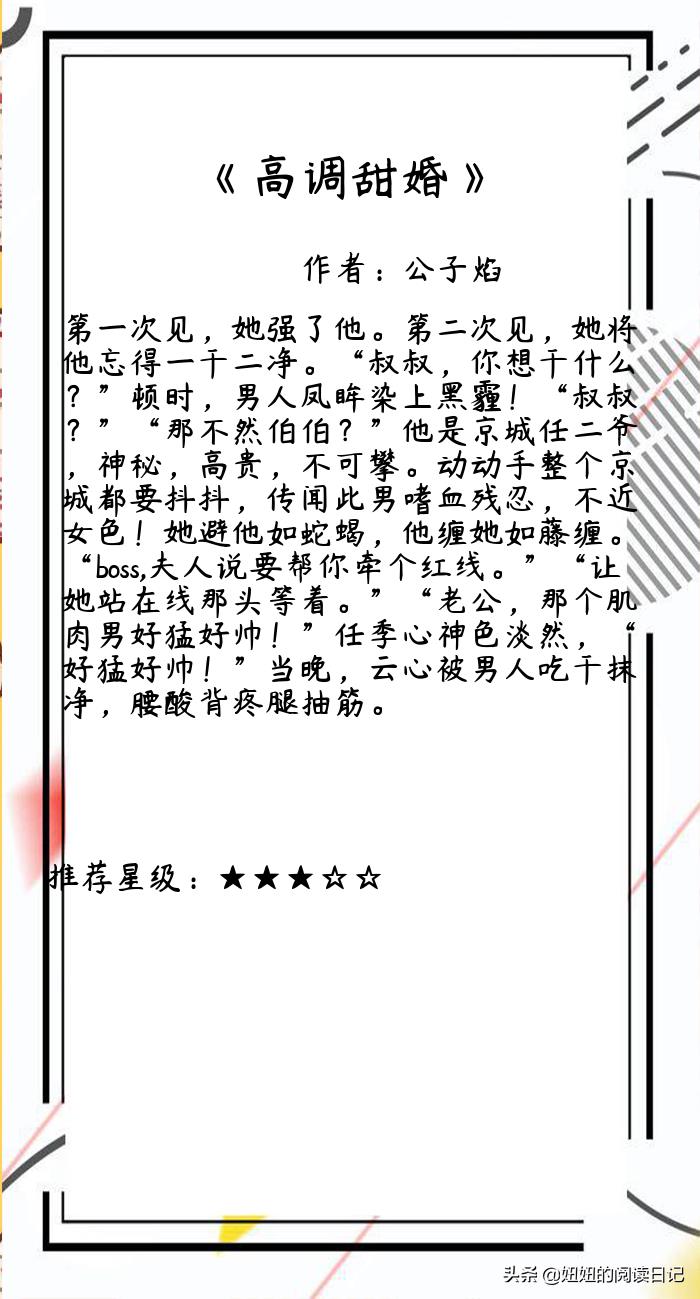 《高调甜婚》
作者：公子焰
第一次见，她强了他。第二次见，她将
他忘得一干二净。“叔叔，你想干什么
？”顿时，男人凤眸染上黑霾！“叔叔
？”“那不然伯伯？”他是京城任二爷
，神秘，高贵，不可攀。动动手整个京
城都要抖抖，传闻此男嗜血残忍，不近
女色！她避他如蛇蝎，他缠她如藤缠。
“boss,夫人说要帮你牵个红线。”“让
她站在线那头等着。”“老公，那个肌
肉男好猛好帅！”任季心神色淡然，“
好猛好帅！”当晚，云心被男人吃干抹
净，腰酸背疼腿抽筋。
推荐星级：★★★☆☆
头条 @妞妞的阅读日记